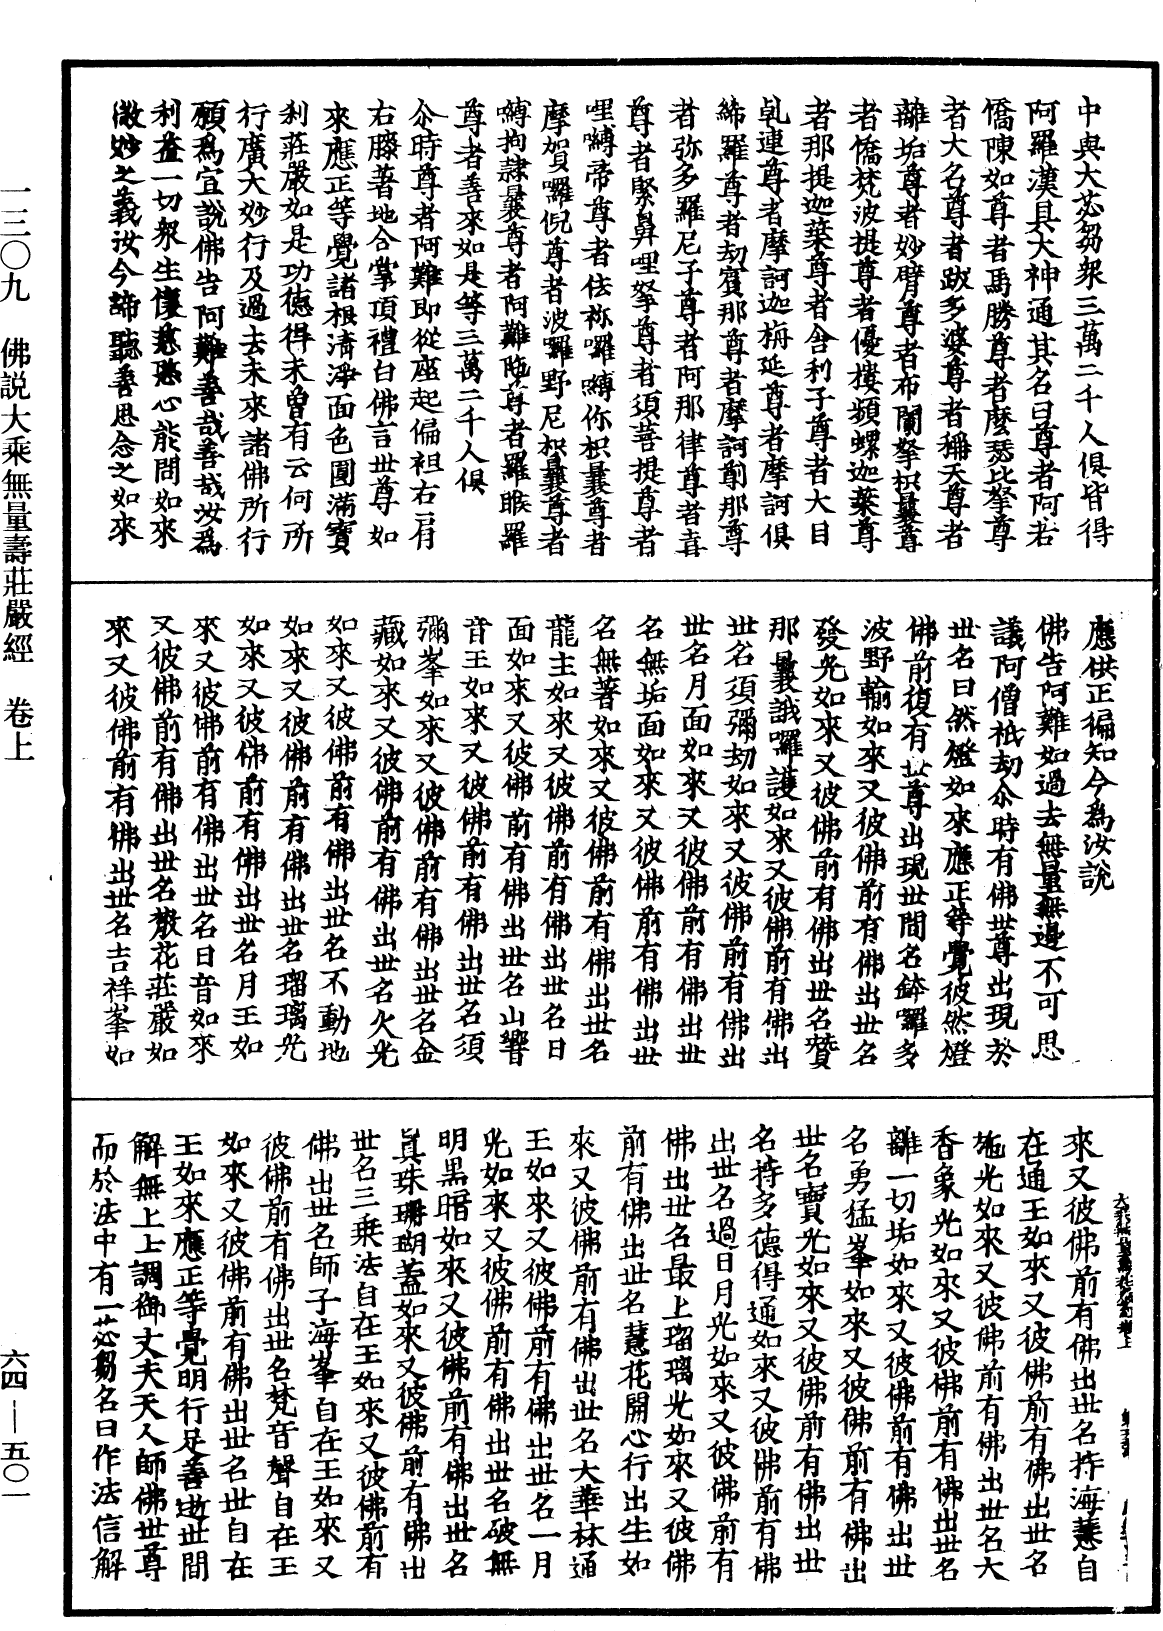 中與大苾芻眾三萬二千人俱皆得
阿羅漢具大神通其名曰尊者阿若
憍陳如尊者馬勝尊者麼瑟比拏尊
者大名尊者跋多婆尊者稱天尊者
離垢尊者妙臂尊者布闌拏枳曩尊
者憍梵波提尊者優樓頻螺迦葉尊
者那提迦葉尊者舍利子尊者大目
乹連尊者摩訶迦栴延尊者摩訶俱
絺羅尊者劫賓那尊者摩訶𠜎那尊
者弥多羅尼子尊者阿那律尊者喜
尊者緊鼻哩拏尊者須菩提尊者
哩嚩帝尊者佉祢囉嚩你枳曩尊者
摩賀囉倪尊者波囉野尼枳曩尊者
嚩拘隸曩尊者阿難陁尊者羅睺羅
尊者善來如是等三萬二千人俱
尒時尊者阿難即從座起偏袒右肩
右膝著地合掌頂禮白佛言世尊如
來應正等覺諸根清淨面色圓滿寶
刹莊嚴如是功德得未曾有云何所
行廣大妙行及過去未來諸佛所行
願為宣說佛告阿難善哉善哉汝為
利益一切眾生懷慈愍心能問如來
微妙之義汝今諦聽善思念之如來
應供正徧知今為汝說
佛告阿難如過去無量無邊不可思
議阿僧祇劫尒時有佛世尊出現於
世名曰然燈如來應正等覺彼然燈
佛前復有世尊出現世間名鉢囉多
波野輸如來又彼佛前有佛出世名
發光如來又彼佛前有佛出世名贊
那曩誐囉護如來又彼佛前有佛出
世名須彌劫如來又彼佛前有佛出
世名月面如來又彼佛前有佛出世
名無垢面如來又彼佛前有佛出世
名無著如來又彼佛前有佛出世名
龍主如來又彼佛前有佛出世名日
面如來又彼佛前有佛出世名山響
音王如來又彼佛前有佛出世名須
彌峯如來又彼佛前有佛出世名金
藏如來又彼佛前有佛出世名火光
如來又彼佛前有佛出世名不動地
如來又彼佛前有佛出世名瑠璃光
如來又彼佛前有佛出世名月王如
來又彼佛前有佛出世名日音如來
又彼佛前有佛出世名散花莊嚴如
來又彼佛前有佛出世名吉祥峯如
來又彼佛前有佛出世名持海慧自
在通王如來又彼佛前有佛出世名
地光如來又彼佛前有佛出世名大
香象光如來又彼佛前有佛出世名
離一切垢如來又彼佛前有佛出世
名勇猛峯如來又彼佛前有佛出
世名寶光如來又彼佛前有佛出世
名持多德得通如來又彼佛前有佛
出世名過日月光如來又彼佛前有
佛出世名最上瑠璃光如來又彼佛
前有佛出世名慧花開心行出生如
來又彼佛前有佛出世名大華林通
王如來又彼佛前有佛出世名一月
光如來又彼佛前有佛出世名破無
明黑暗如來又彼佛前有佛出世名
真珠珊瑚蓋如來又彼佛前有佛出
世名三乘法自在王如來又彼佛前有
佛出世名師子海峯自在王如來又
彼佛前有佛出世名梵音聲自在王
如來又彼佛前有佛出世名世自在
王如來應正等覺明行足善逝世間
解無上上調御丈夫天人師佛世尊
而於法中有一苾芻名曰作法信解
一三〇九　佛説大乘無量壽莊嚴經　卷上
六四—五〇一